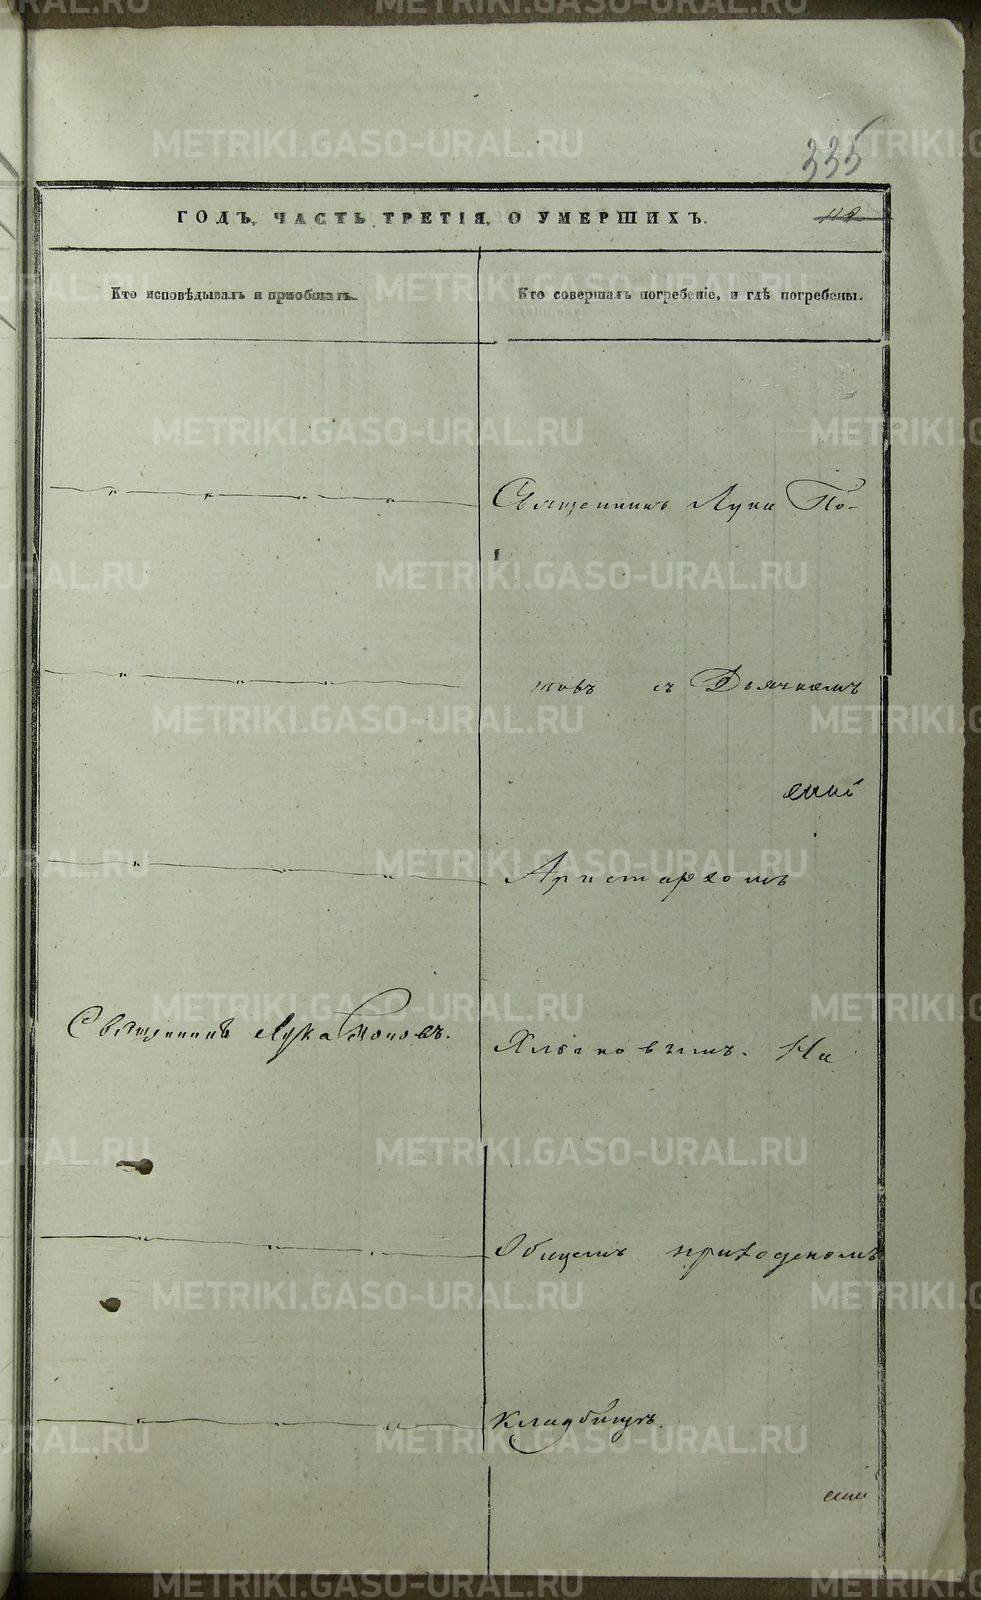 335
ГОДЪ, ЧАСТЬ ТРЕТІЯ, О УМЕРШИХЪ.
Кто исповѣдывалъ и пріобщалъ.
Кто совершалъ погребеніе, и гдѣ погребены.
Священникъ Лука По-
повъ съ Дьячкомъ
Аристархомъ
Священникъ Лука Поповъ.
На
Общемъ приходскомъ
кладбищѣ.
METRIKI.GASO-URAL.RU